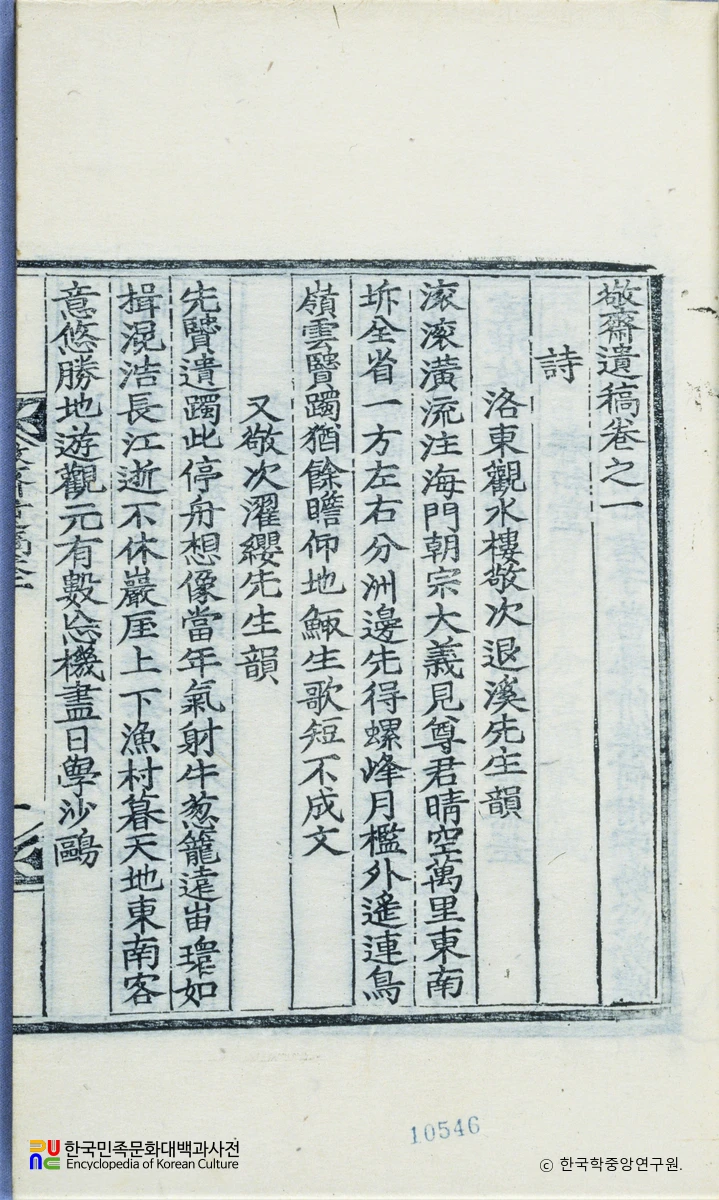 敬齋遺稿卷之一
詩
洛東觀水樓敬次退溪先生韻
滚滚潢流注海門朝宗大義見尊君晴空萬里東南
坼全省一方左右分洲邊先得螺峰月檻外遙連鳥
嶺雲賢躅猶餘瞻仰地鯫生歌短不成文
又敬次濯纓先生韻
先賢遺躅此停舟想像當年氣射牛葱籠遠岀環如
揖混浩長江逝不休巖厓上下漁村暮天地東南客
意悠勝地遊觀元有數忘機盡日學沙鷗
10546
한국민족문화대백과사전
Encyclopedia of Korean Culture
© 한국학중앙연구원.